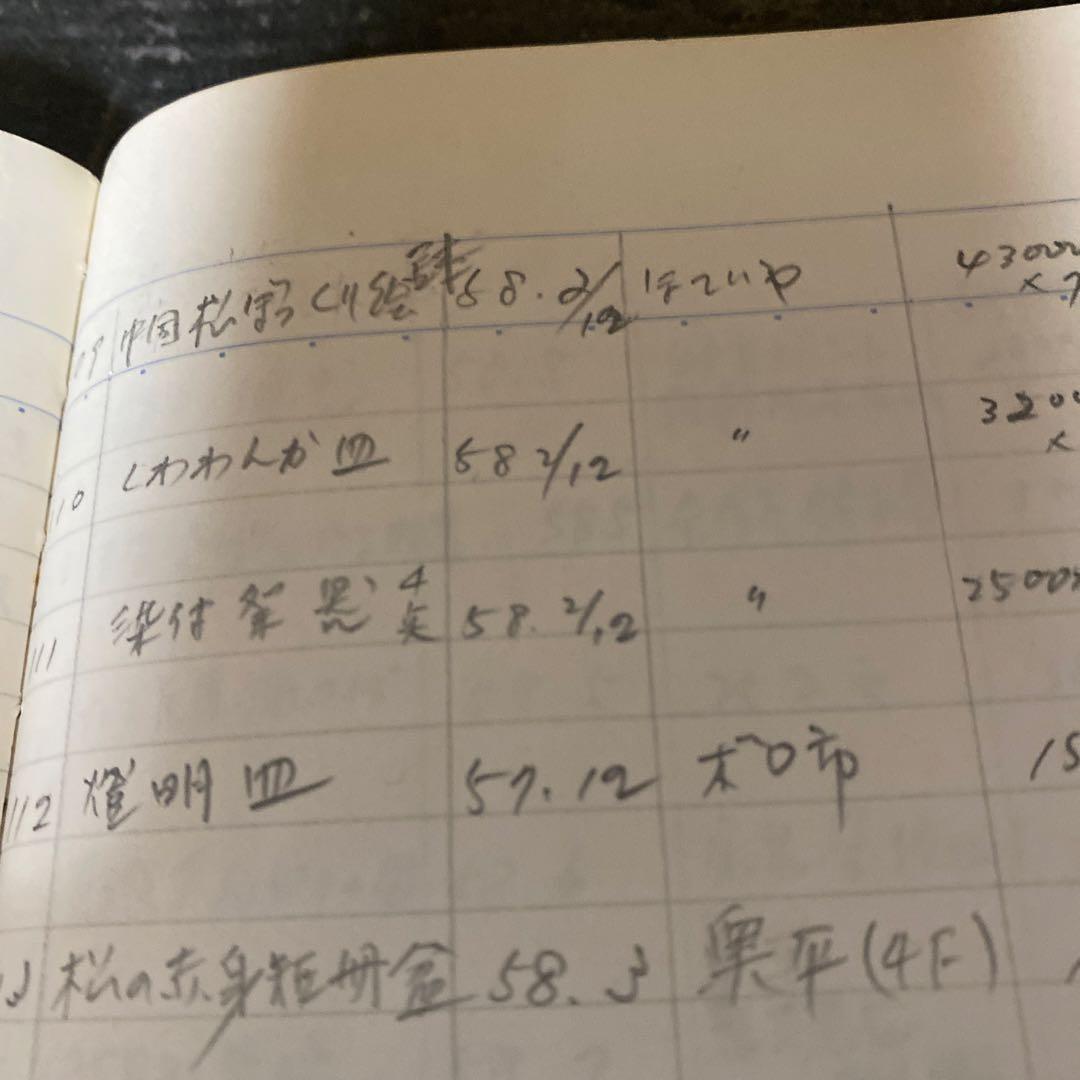 09 中国松ぼっくり絵鉢 58. 2/12 ほていや 43000
×7
10 くわわんか皿 58 2/12 〃 3200
×
111 染付 祭器 4 58. 2/12 〃 2500
112 燈明皿 57. 12 ボロ市 15
松の赤身短冊盆 58. 3 奥平(4F)